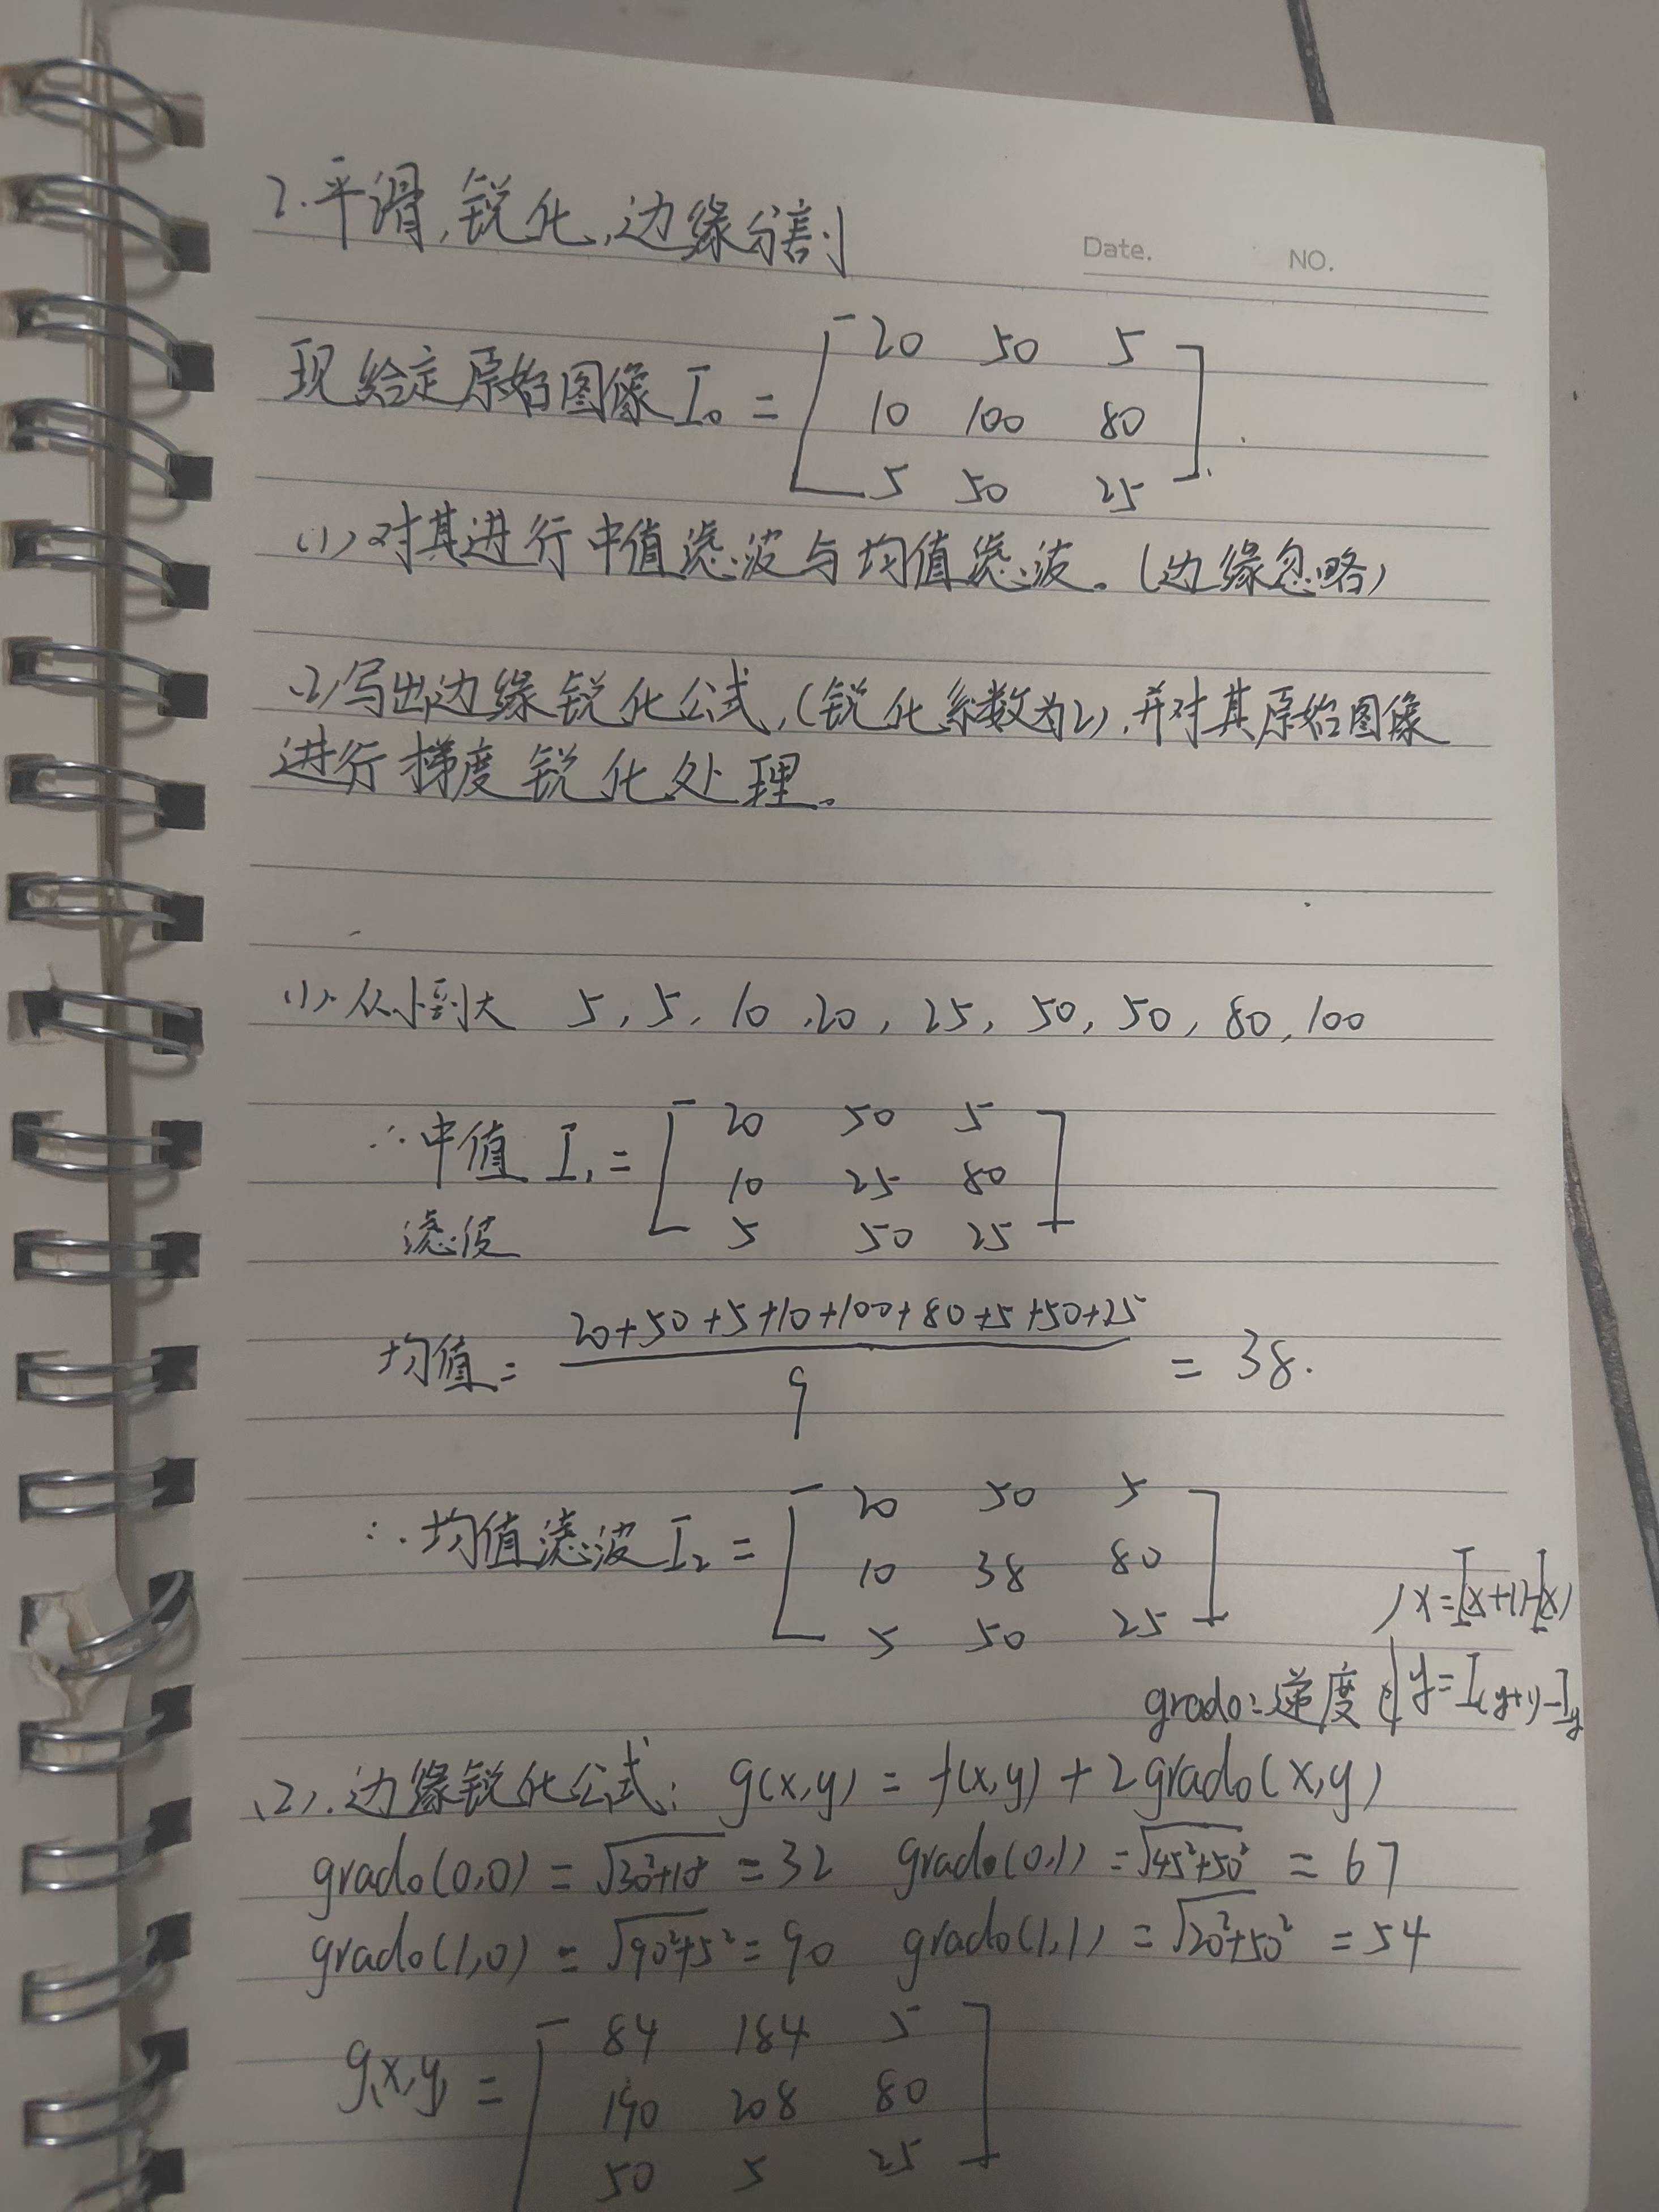 2.平滑,锐化,边缘分割
Date. NO.
现给定原始图像 I₀ = [20 50 5
10 100 80
5 50 25].
(1)对其进行中值滤波与均值滤波。(边缘忽略)
(2)写出边缘锐化公式,(锐化系数为2),并对其原始图像
进行梯度锐化处理。
(1).从小到大 5, 5, 10, 20, 25, 50, 50, 80, 100
∴中值 I₁ = [20 50 5
10 25 80
滤波 5 50 25]
均值 = (20+50+5+10+100+80+5+50+25)/9 = 38.
∴均值滤波 I₂ = [20 50 5
10 38 80
5 50 25]
x=I(x+1)-I(x)
grado:递度 y=I(y+1)-Iy
(2).边缘锐化公式: g(x,y) = f(x,y) + 2grado(x,y)
grado(0,0) = √30²+10² = 32 grado(0,1) = √45²+50² = 67
grado(1,0) = √90²+5² = 90 grado(1,1) = √20²+50² = 54
g(x,y) = [84 184 5
190 208 80
50 5 25]